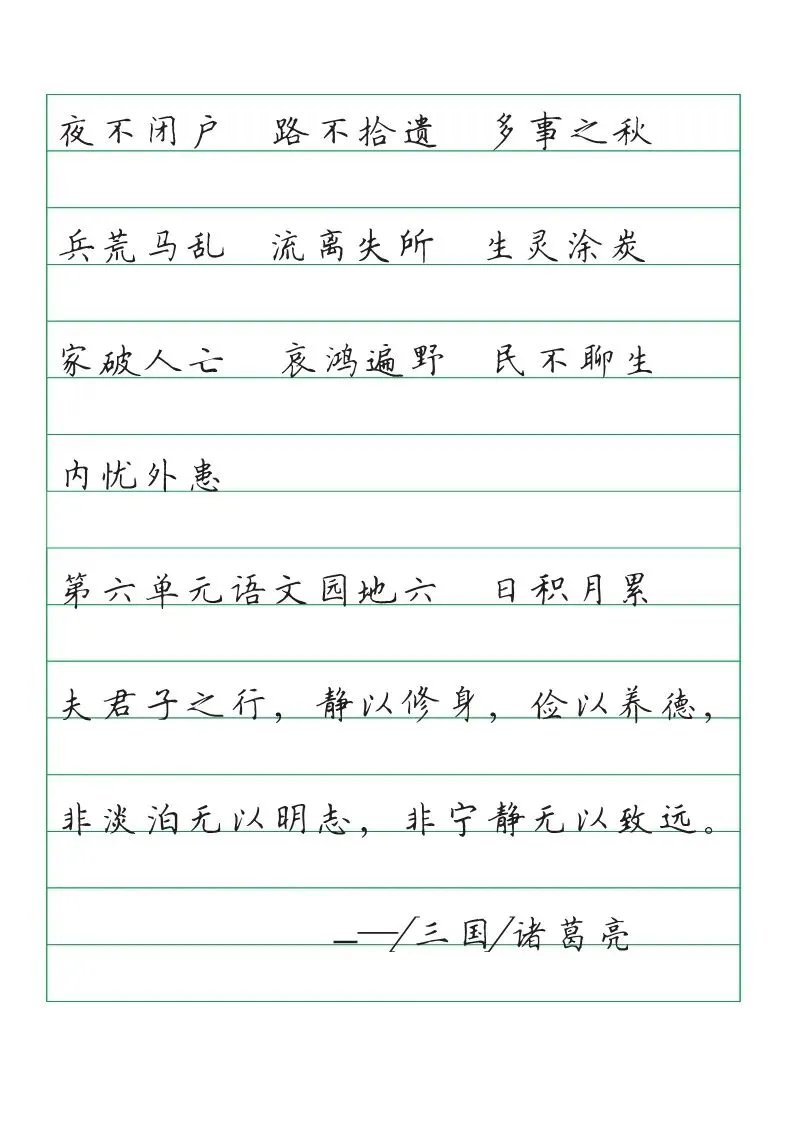 夜不闭户 路不拾遗 多事之秋
兵荒马乱 流离失所 生灵涂炭
家破人亡 哀鸿遍野 民不聊生
内忧外患
第六单元语文园地六 日积月累
夫君子之行，静以修身，俭以养德，
非淡泊无以明志，非宁静无以致远。
_—/三国/诸葛亮